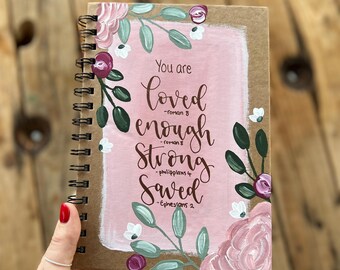 You are
loved
-romans 8
enough
-romans 8
Strong
-philippians 4
Saved
-Ephesians 2